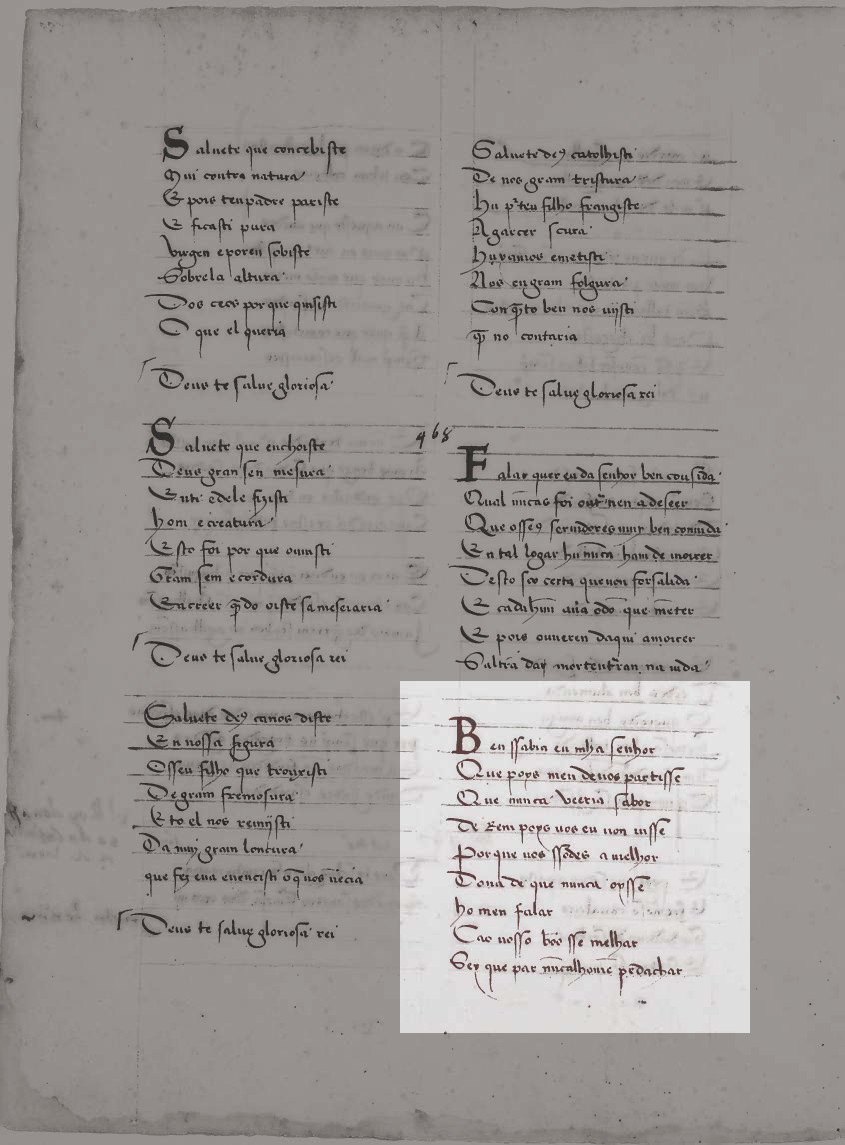 Saluete que concebiste
Qui contra natura
E pois teu padre pariste
E ficasti pura
Virgen e poren sobiste
Sobre la altura
Dos ceos por que quisisti
O que el queria
Deus te salue gloriosa
Saluete que enchoiste
Deus gran sen mesura
E nti e dele fezisti
hom e creatura
Esto foi por que ouuisti
Gram sem e cordura
En creer qñdo oiste sa meseiaria
Deus te salue gloriosa rei
Saluete deꝯ ca nos diste
En nossa figura
O sseu filho que trouxisti
De gram fremosura
E to el nos remijsti
Da muj gram loucura
que fez eua e uencisti o q̄ nos uēcia
Deus te salue gloriosa rei
Saluete deꝯ catolhisti
De nos gram tristura
hu pr teu filho frangiste
A garcer scura
hu yamos e metisti
Nos en gram folgura
Con qñto ben nos uijsti
qñ no contaria
Deus te salue gloriosa rei
468
Falar quer eu da senhor ben cousida
Qual nūcas foi outr nen a de seer
Que osseꝯ seruidores muy ben conuida
En tal logar hu nūca ham de morrer
Desto soo certa que non for falida
E cada hūu aũa odō que meter
E pois ouueren daqui amorrer
Saltrā day mort entrran na uida
Ben ssabia eu mha senhor
Que poys meu de uos partisse
Que nunca ueeria sabor
De Rem poys uos eu non uisse
Por que uos ssodes a melhor
Dona de que nunca oysse
homen falar
Cao uosso bōo ssemelhar
Sey que par nūcalhomē pedachar